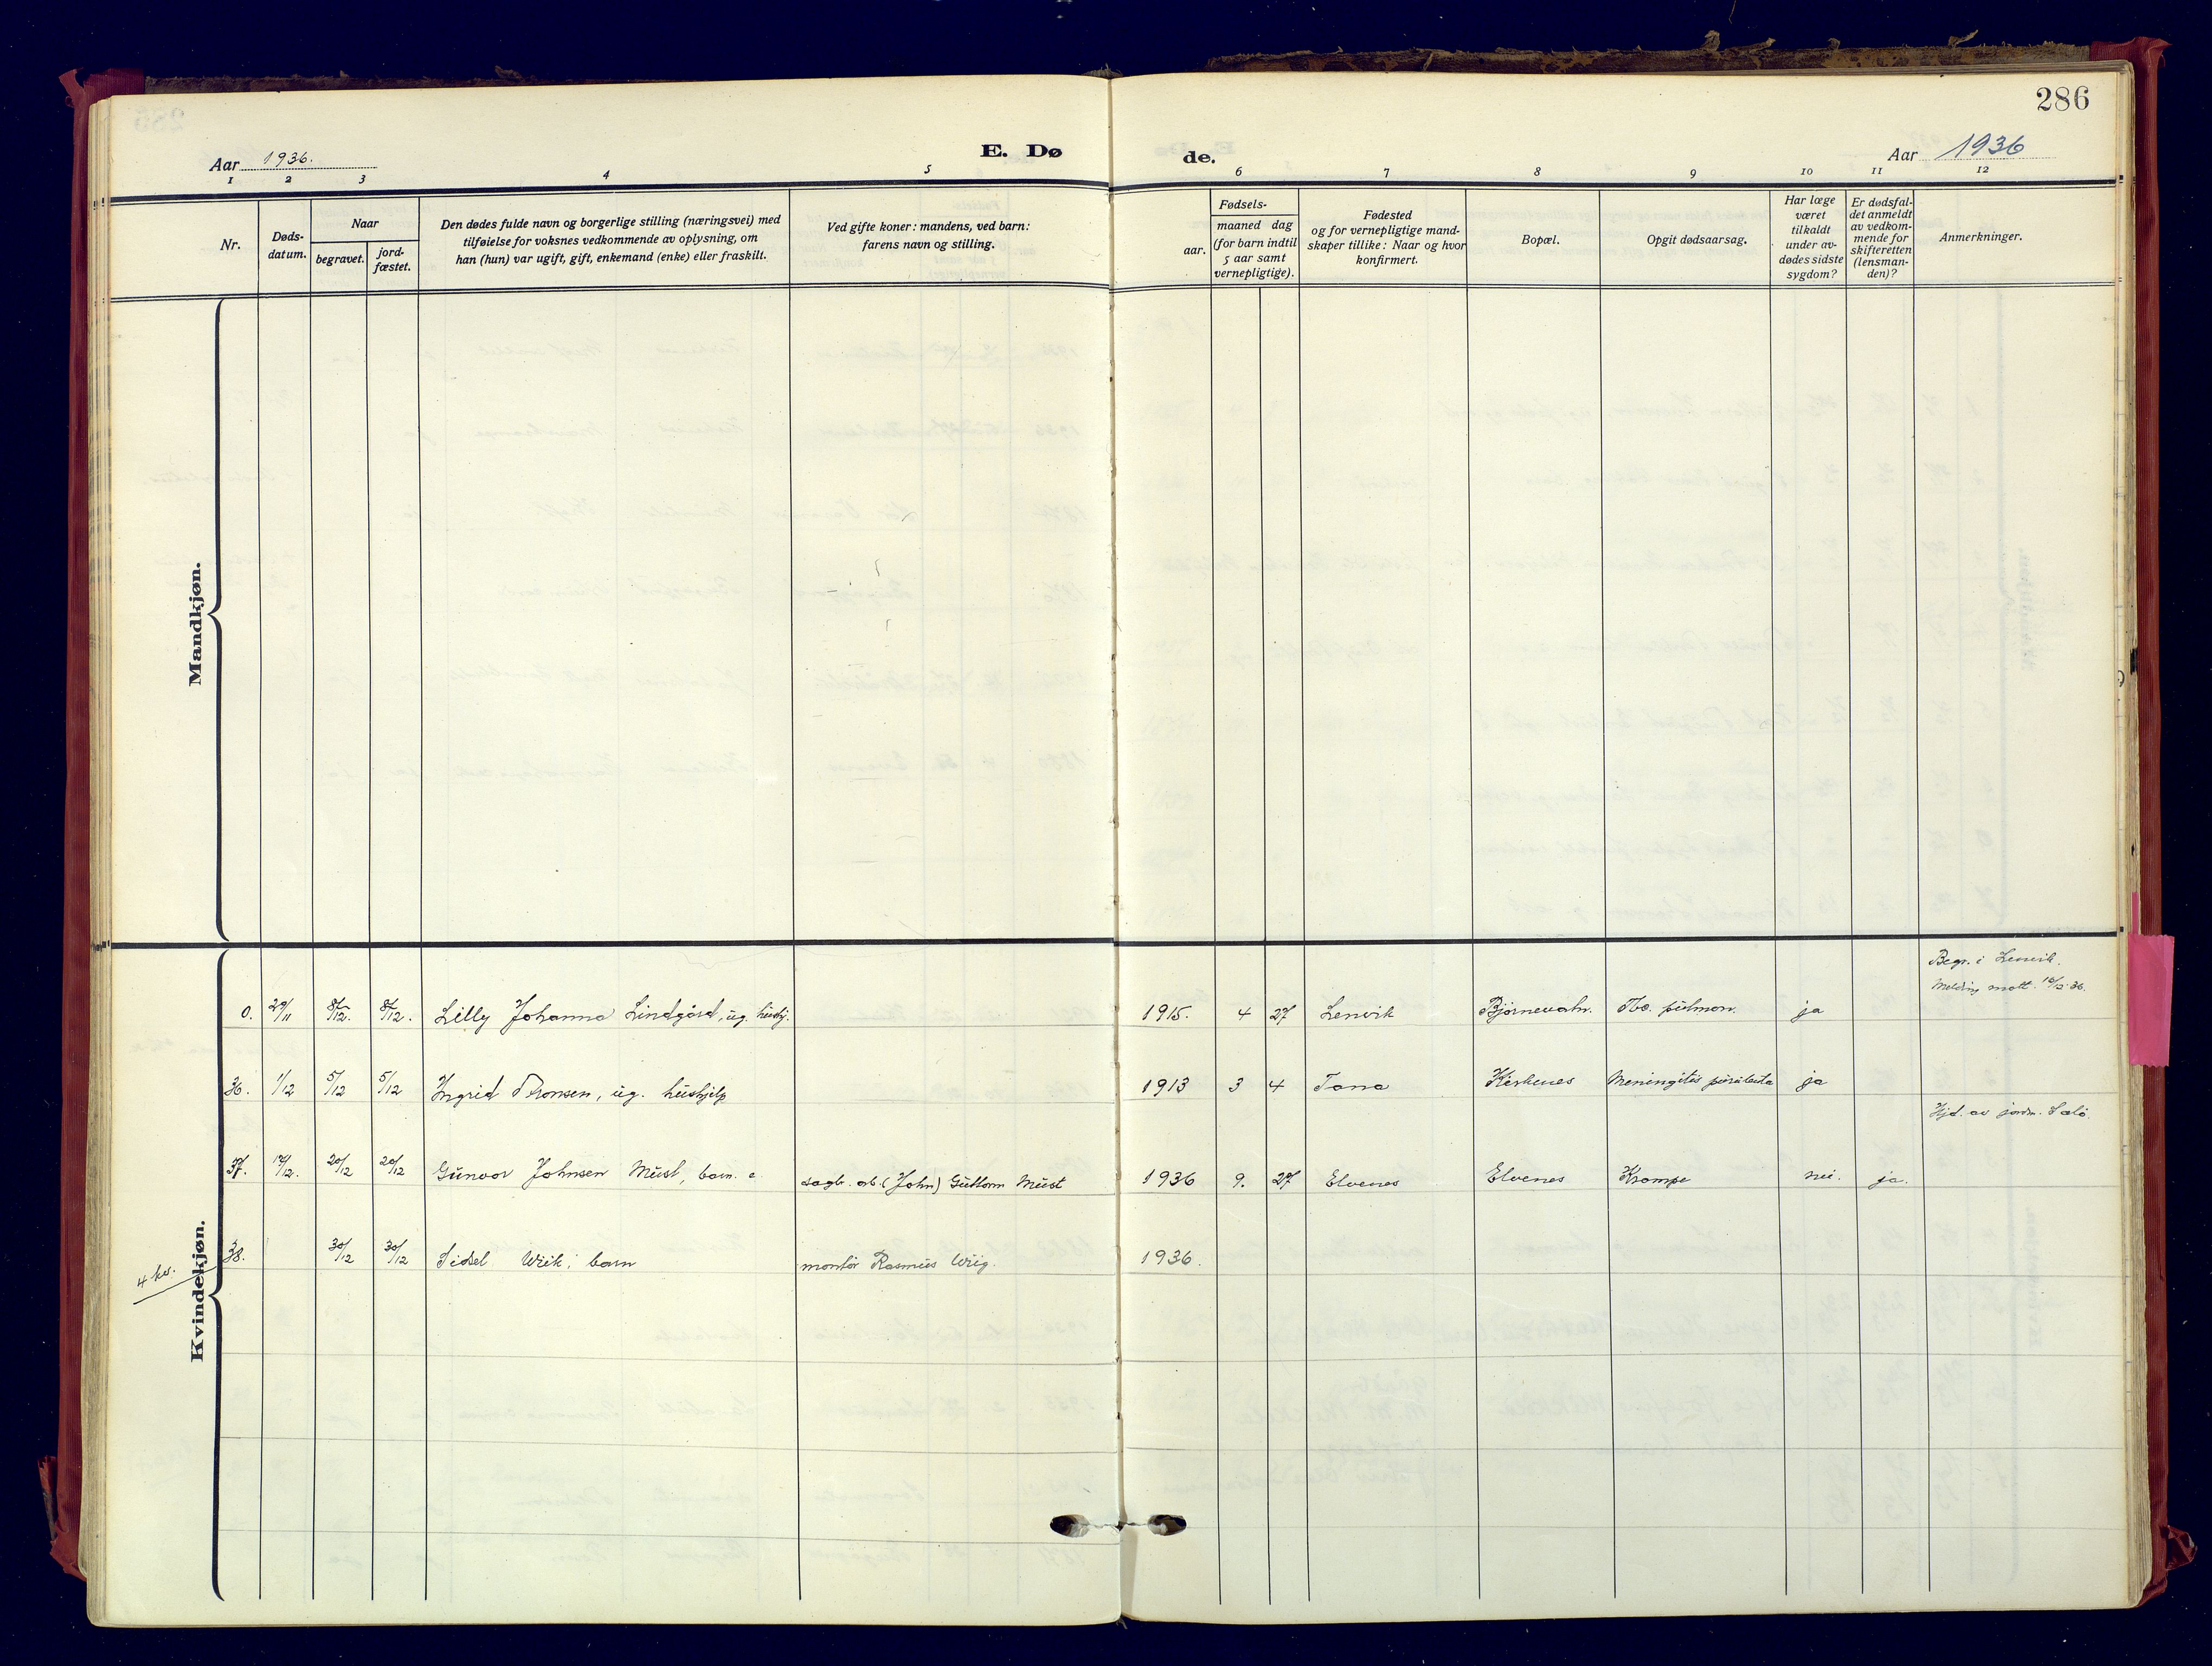 286
Aar 1936.
E. Dø
de.
Aar 1936
1 2 3 4 5 6 7 8 9 10 11 12
Nr.
Døds-
datum.
Naar
begravet.
jord-
fæstet.
Den dødes fulde navn og borgerlige stilling (næringsvei) med
tilføielse for voksnes vedkommende av oplysning, om
han (hun) var ugift, gift, enkemand (enke) eller fraskilt.
Ved gifte koner: mandens, ved barn:
farens navn og stilling.
Fødsels-
aar.
maaned dag
(for barn indtil
5 aar samt
vernepligtige).
Fødested
og for vernepligtige mand-
skaper tillike: Naar og hvor
konfirmert.
Bopæl.
Opgit dødsaarsag.
Har læge
været
tilkaldt
under av-
dødes sidste
sygdom?
Er dødsfal-
det anmeldt
av vedkom-
mende for
skifteretten
(lensman-
den)?
Anmerkninger.
Mandkjøn.
Kvindekjøn.
4 kv.
Begr. i Lenvik.
Melding mott. 10/12.36.
0. 29/11 8/12. 8/12. Lilly Johanna Lindgård, ug. hushj. 1915. 4 27 Lenvik Bjørnevatn. Tbc. pulmon. ja
36. 1/12 5/12 5/12 Ingrid Thronsen, ug. hushjelp 1913 3 4 Tana Kirkenes Meningitis purulenta ja
Hjd. av jordm. Salo.
37. 12. 20/12 20/12 Gunvor Johnsen Must, barn. sagbr. arb. (John) Guttorm Must 1936 9. 27 Elvenes Elvenes Krampe nei. ja.
38. 30/12 30/12 Sidsel Wiik, barn montør Rasmus Wiig. 1936.